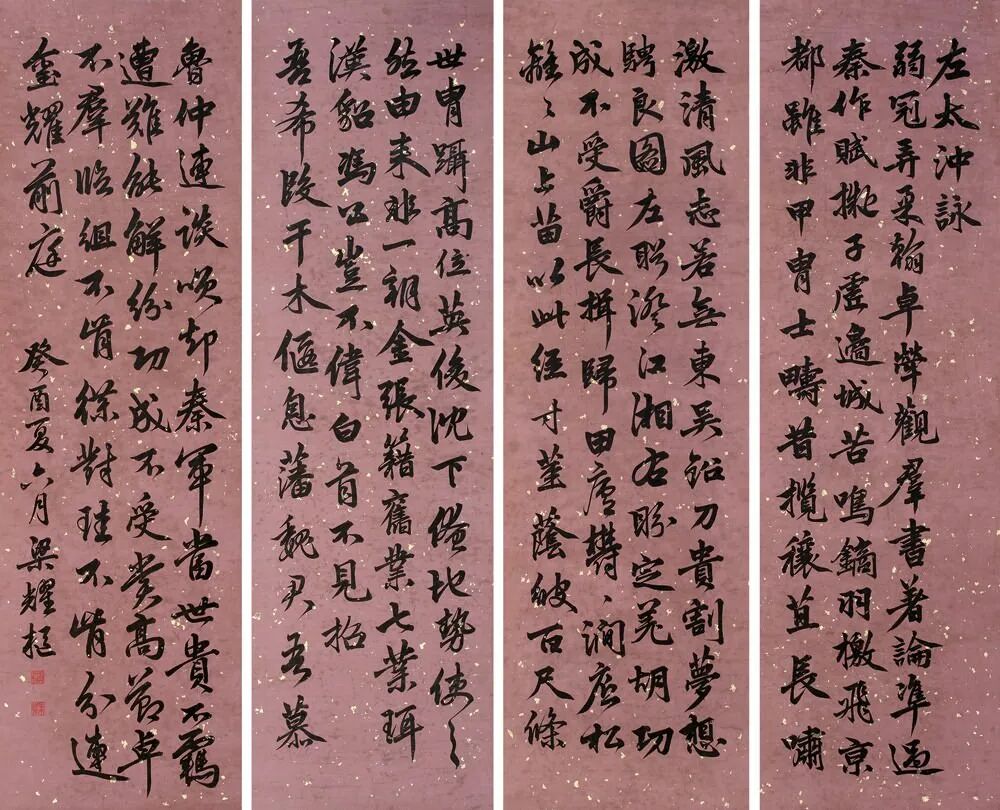 左太沖詠
弱冠弄柔翰卓犖觀羣書著論準過
秦作賦擬子虛邊城苦鳴鏑羽檄飛京
都雖非甲冑士疇昔攬穰苴長嘯
激清風志若無東吳鉛刀貴割夢想
騁良圖左眄澄江湘右盼定羌胡功
成不受爵長揖歸田廬鬱〻澗底松
離〻山上苗以此徑寸莖蔭彼百尺條
世冑躡高位英俊沈下僚地勢使之
然由來非一朝金張籍舊業七葉珥
漢貂馮公豈不偉白首不見招
吾希段干木偃息藩魏君吾慕
魯仲連談笑却秦軍當世貴不羈
遭難能解紛功成不受賞高節卓
不羣臨組不肯緤對珪不肯分連
璽耀前庭 癸酉夏六月梁耀樞